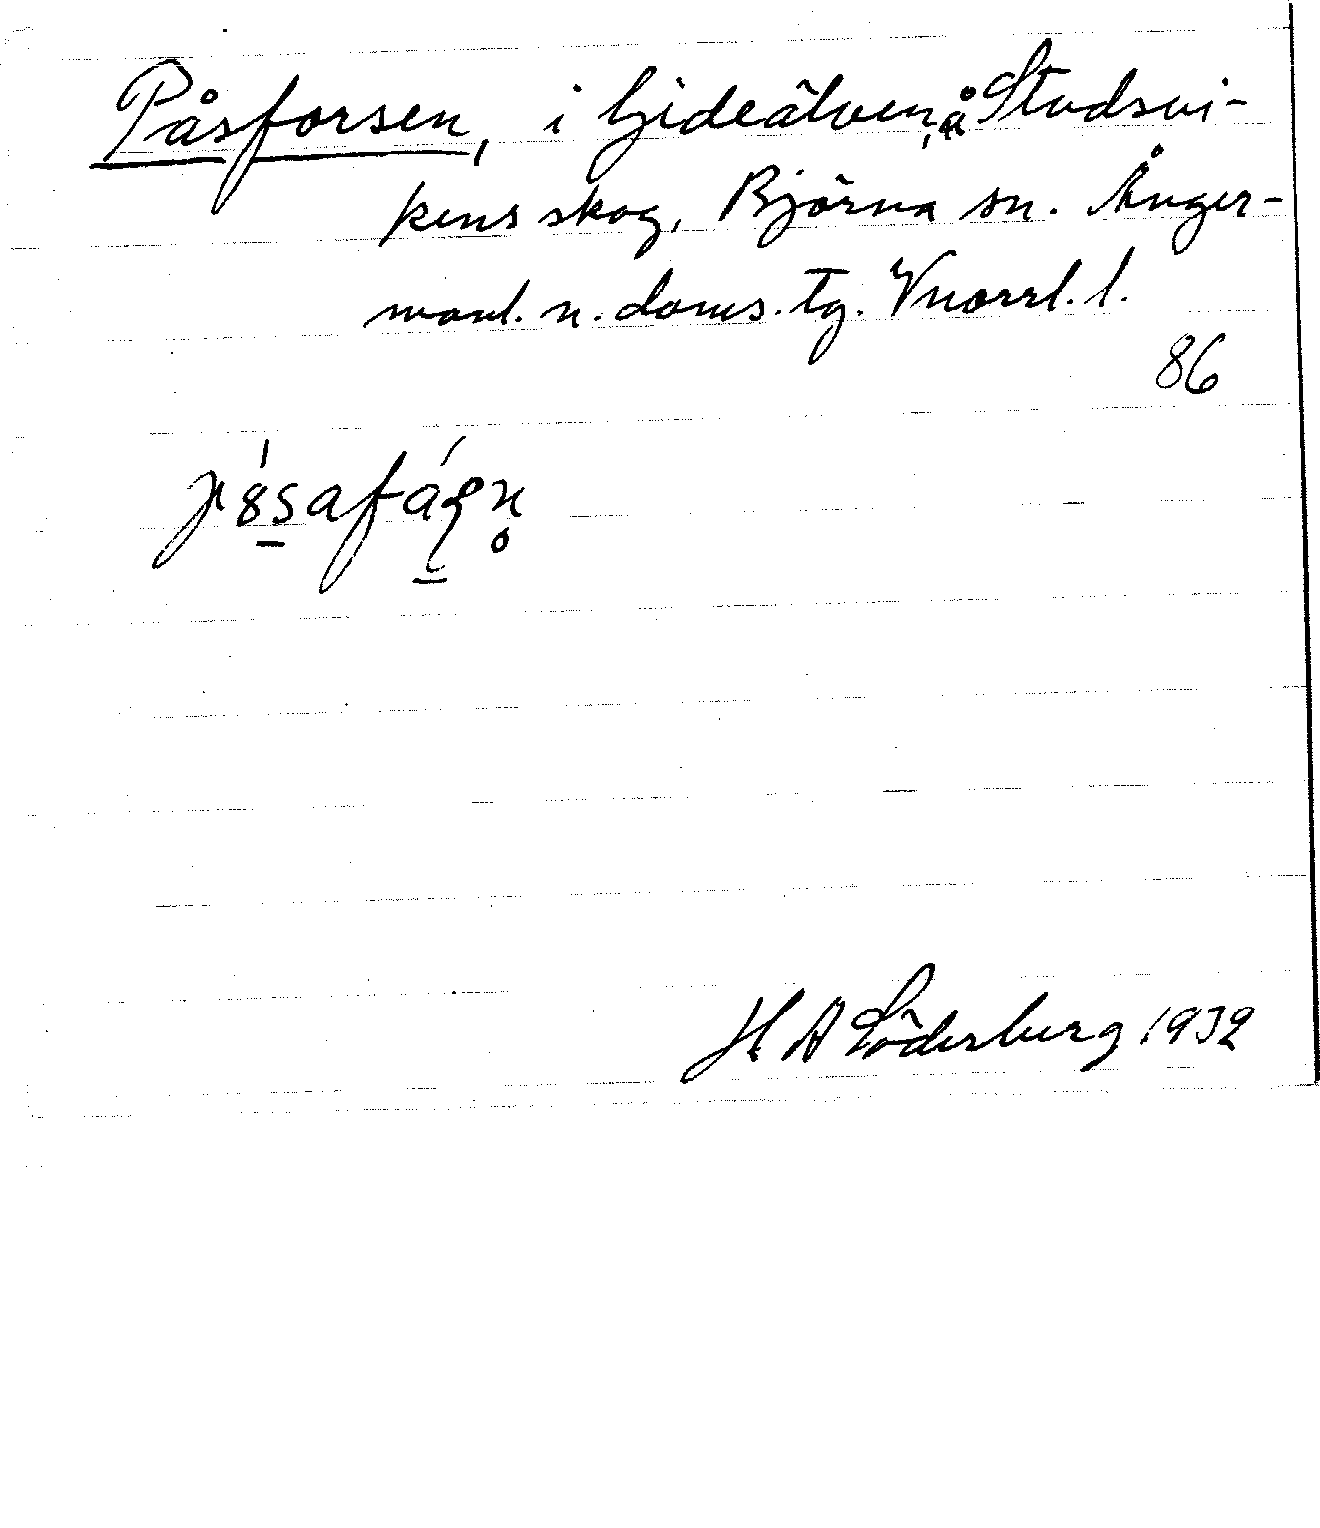 Påsforsen, i Gideälven, å Studsvi-
kens skog, Björna sn. Ånger-
manl. n. doms. tg. Vnorrl. l.
86
H A Söderberg 1932